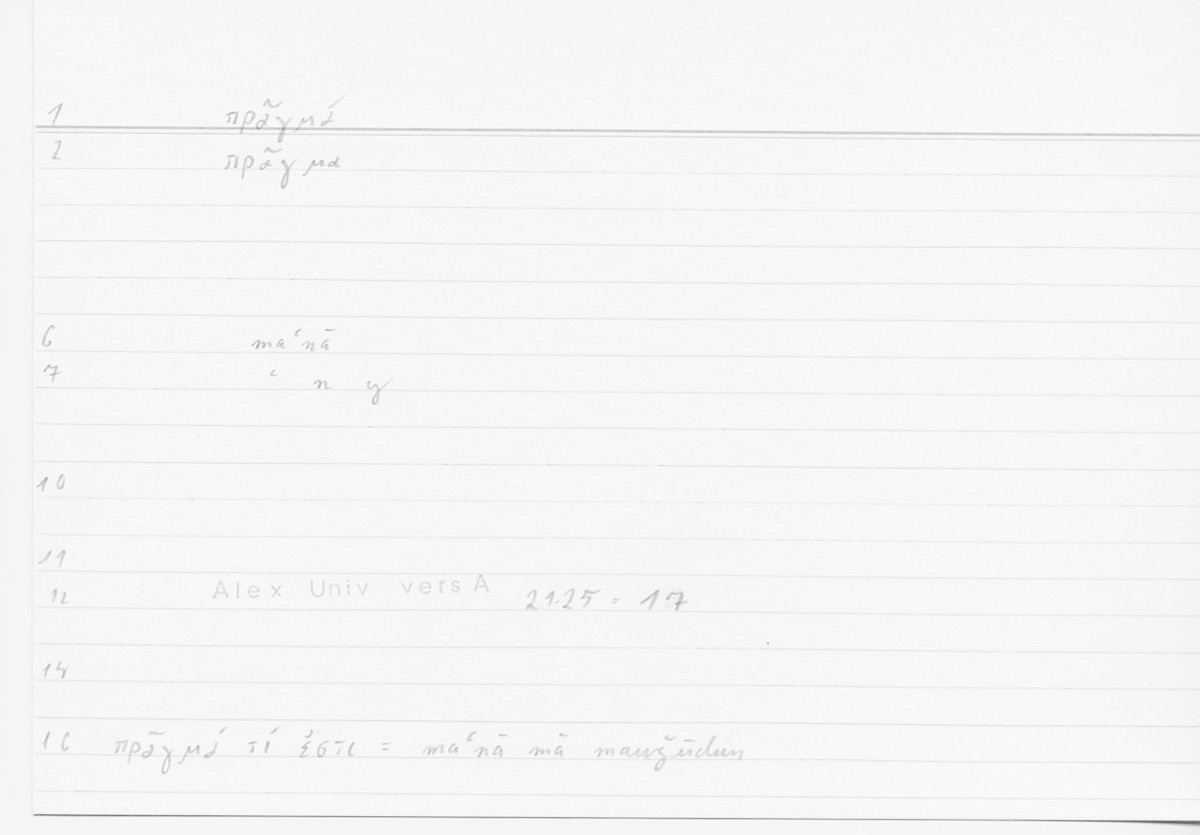 1 πρᾶγμά
2 πρᾶγμα
6 maʿnā
7 ʿ n y
10
11
12 Alex Univ vers A 21.25 = 17
14
16 πρᾶγμά τί ἐστι = maʿnā mā mawǧūdun